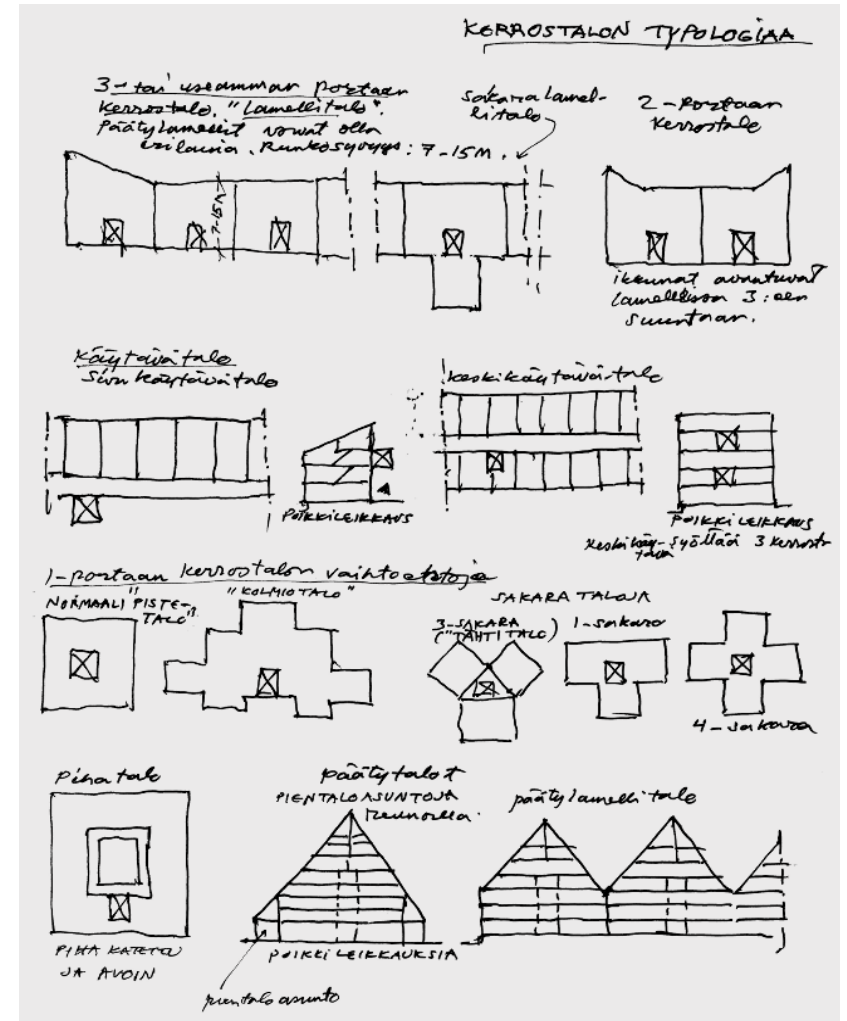 KERROSTALON TYPOLOGIAA
3-tai useamman portaan
kerrostalo. "Lamellitalo".
Päätylamellit voivat olla
erilaisia. Runkosyvyys: 7-15M.
7-15M
sakara lamel-
litalo
2-portaan
kerrostalo
ikkunat avautuvat
lamellissa 3:een
suuntaan.
Käytävätalo
Sivukäytävätalo
POIKKILEIKKAUS
keskikäytävä-talo
POIKKILEIKKAUS
keskikäy-
tävä
syöttää 3 kerrosta
1-portaan kerrostalon vaihtoehtoja
NORMAALI "PISTE-
TALO"
"KOLMIOTALO"
SAKARATALOJA
3-SAKARA
("TÄHTITALO)
1-sakara
4-sakara
Pihatalo
PIHA KATETTU
JA AVOIN
päätytalot
PIENTALOASUNTOJA
reunoilla.
POIKKILEIKKAUKSIA
pientaloasunto
päätylamellitalo